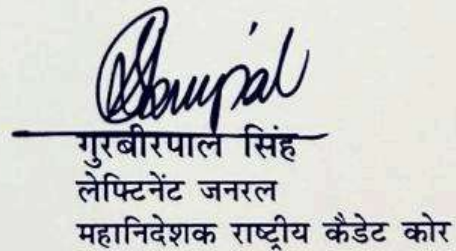 गुरबीरपाल सिंह
लेफ्टिनेंट जनरल
महानिदेशक राष्ट्रीय कैडेट कोर